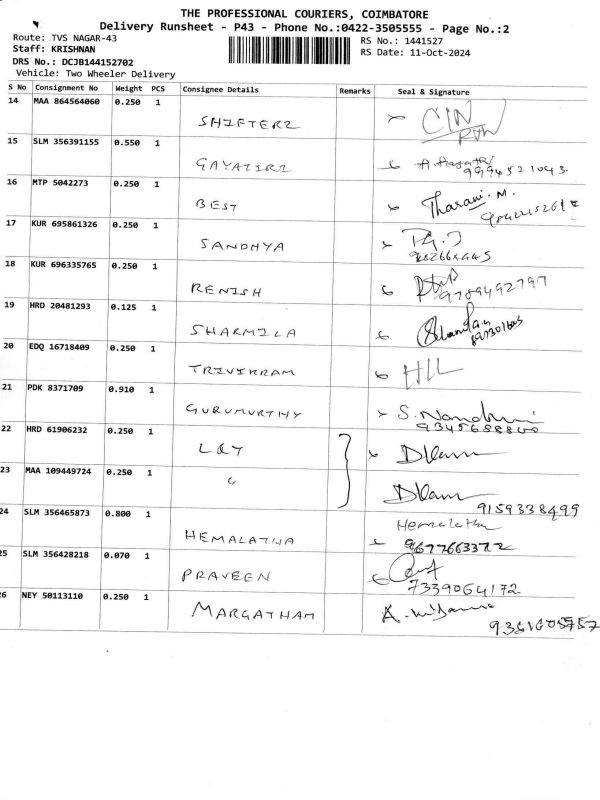 THE PROFESSIONAL COURIERS, COIMBATORE
Delivery Runsheet - P43 - Phone No.:0422-3505555 - Page No.:2
Route: TVS NAGAR-43
RS No.: 1441527
Staff: KRISHNAN
RS Date: 11-Oct-2024
DRS No.: DCJB144152702
Vehicle: Two Wheeler Delivery
S No Consignment No Weight PCS Consignee Details Remarks Seal & Signature
14 MAA 864564060 0.250 1
SHIFTERZ
15 SLM 356391155 0.550 1
GAYATIRI 9994521043
16 MTP 5042273 0.250 1
BEST Tharani. M.
17 KUR 695861326 0.250 1
SANDHYA
18 KUR 696335765 0.250 1
RENISH 9789492797
19 HRD 20481293 0.125 1
SHARMILA
20 EDQ 16718409 0.250 1
TRIVIKRAM
21 PDK 8371709 0.910 1
GURUMURTHY S. Nandhini
9345658800
22 HRD 61906232 0.250 1
23 MAA 109449724 0.250 1
"
9159338499
24 SLM 356465873 0.800 1
HEMALATHA Hemalatha
9677663372
25 SLM 356428218 0.070 1
PRAVEEN 7339064172
26 NEY 50113110 0.250 1
MARGATHAM
9351605757